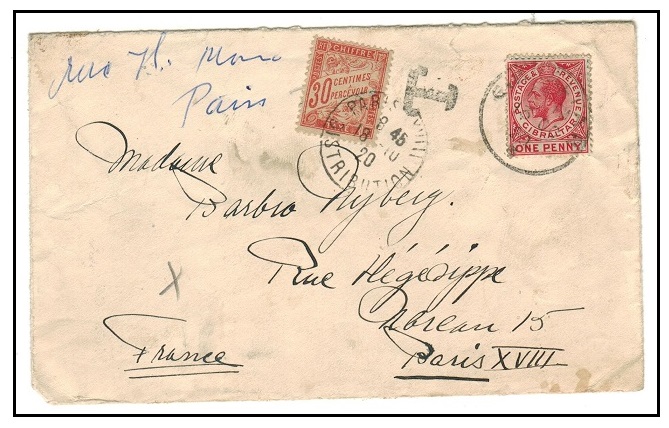 Paris
CHIFFRE
30 CENTIMES
À PERCEVOIR
T
PARIS
8 45
10
20
DISTRIBUTION
POSTAGE & REVENUE
GIBRALTAR
ONE PENNY
Madame
Barbro Nyberg.
Rue Hégésippe
Moreau 15
Paris XVIII
France
X